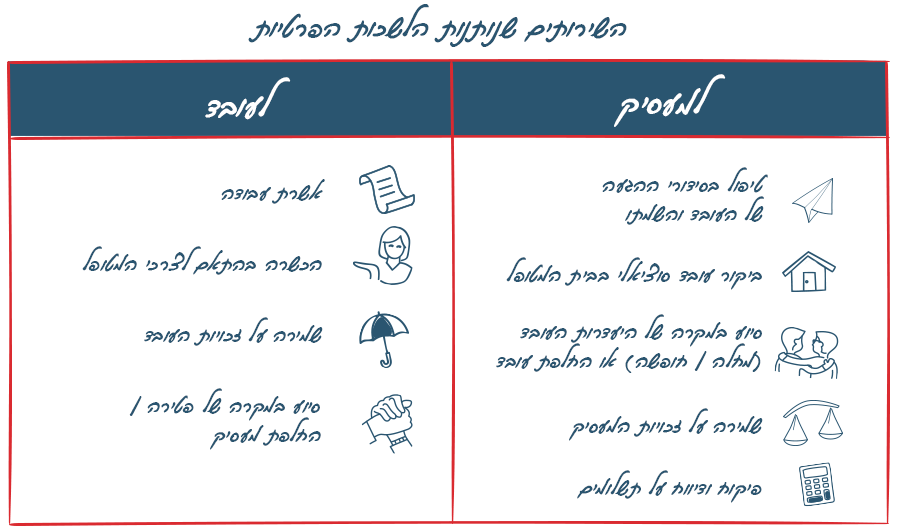 השירותים שנותנות הלשכות הפרטיות
למעסיק
טיפול בסידורי ההגעה
של העובד והשמתו
ביקור עובד סוציאלי בבית המטופל
סיוע במקרה של היעדרות העובד
(מחלה / חופשה) או החלפת עובד
שמירה על זכויות המעסיק
פיקוח ודיווח על תשלומים
לעובד
אשרת עבודה
הכשרה בהתאם לצרכי המטופל
שמירה על זכויות העובד
סיוע במקרה של פטירה /
החלפת מעסיק